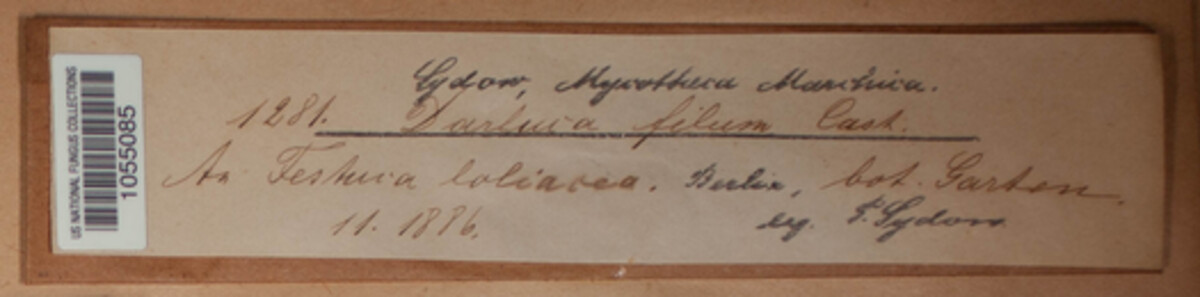 US NATIONAL FUNGUS COLLECTIONS
1055085
Sydow, Mycotheca Marchica.
1281. Darluca filum Cast.
An Festuca loliacea. Berlin, bot. Garten.
11. 1886.
leg. P. Sydow